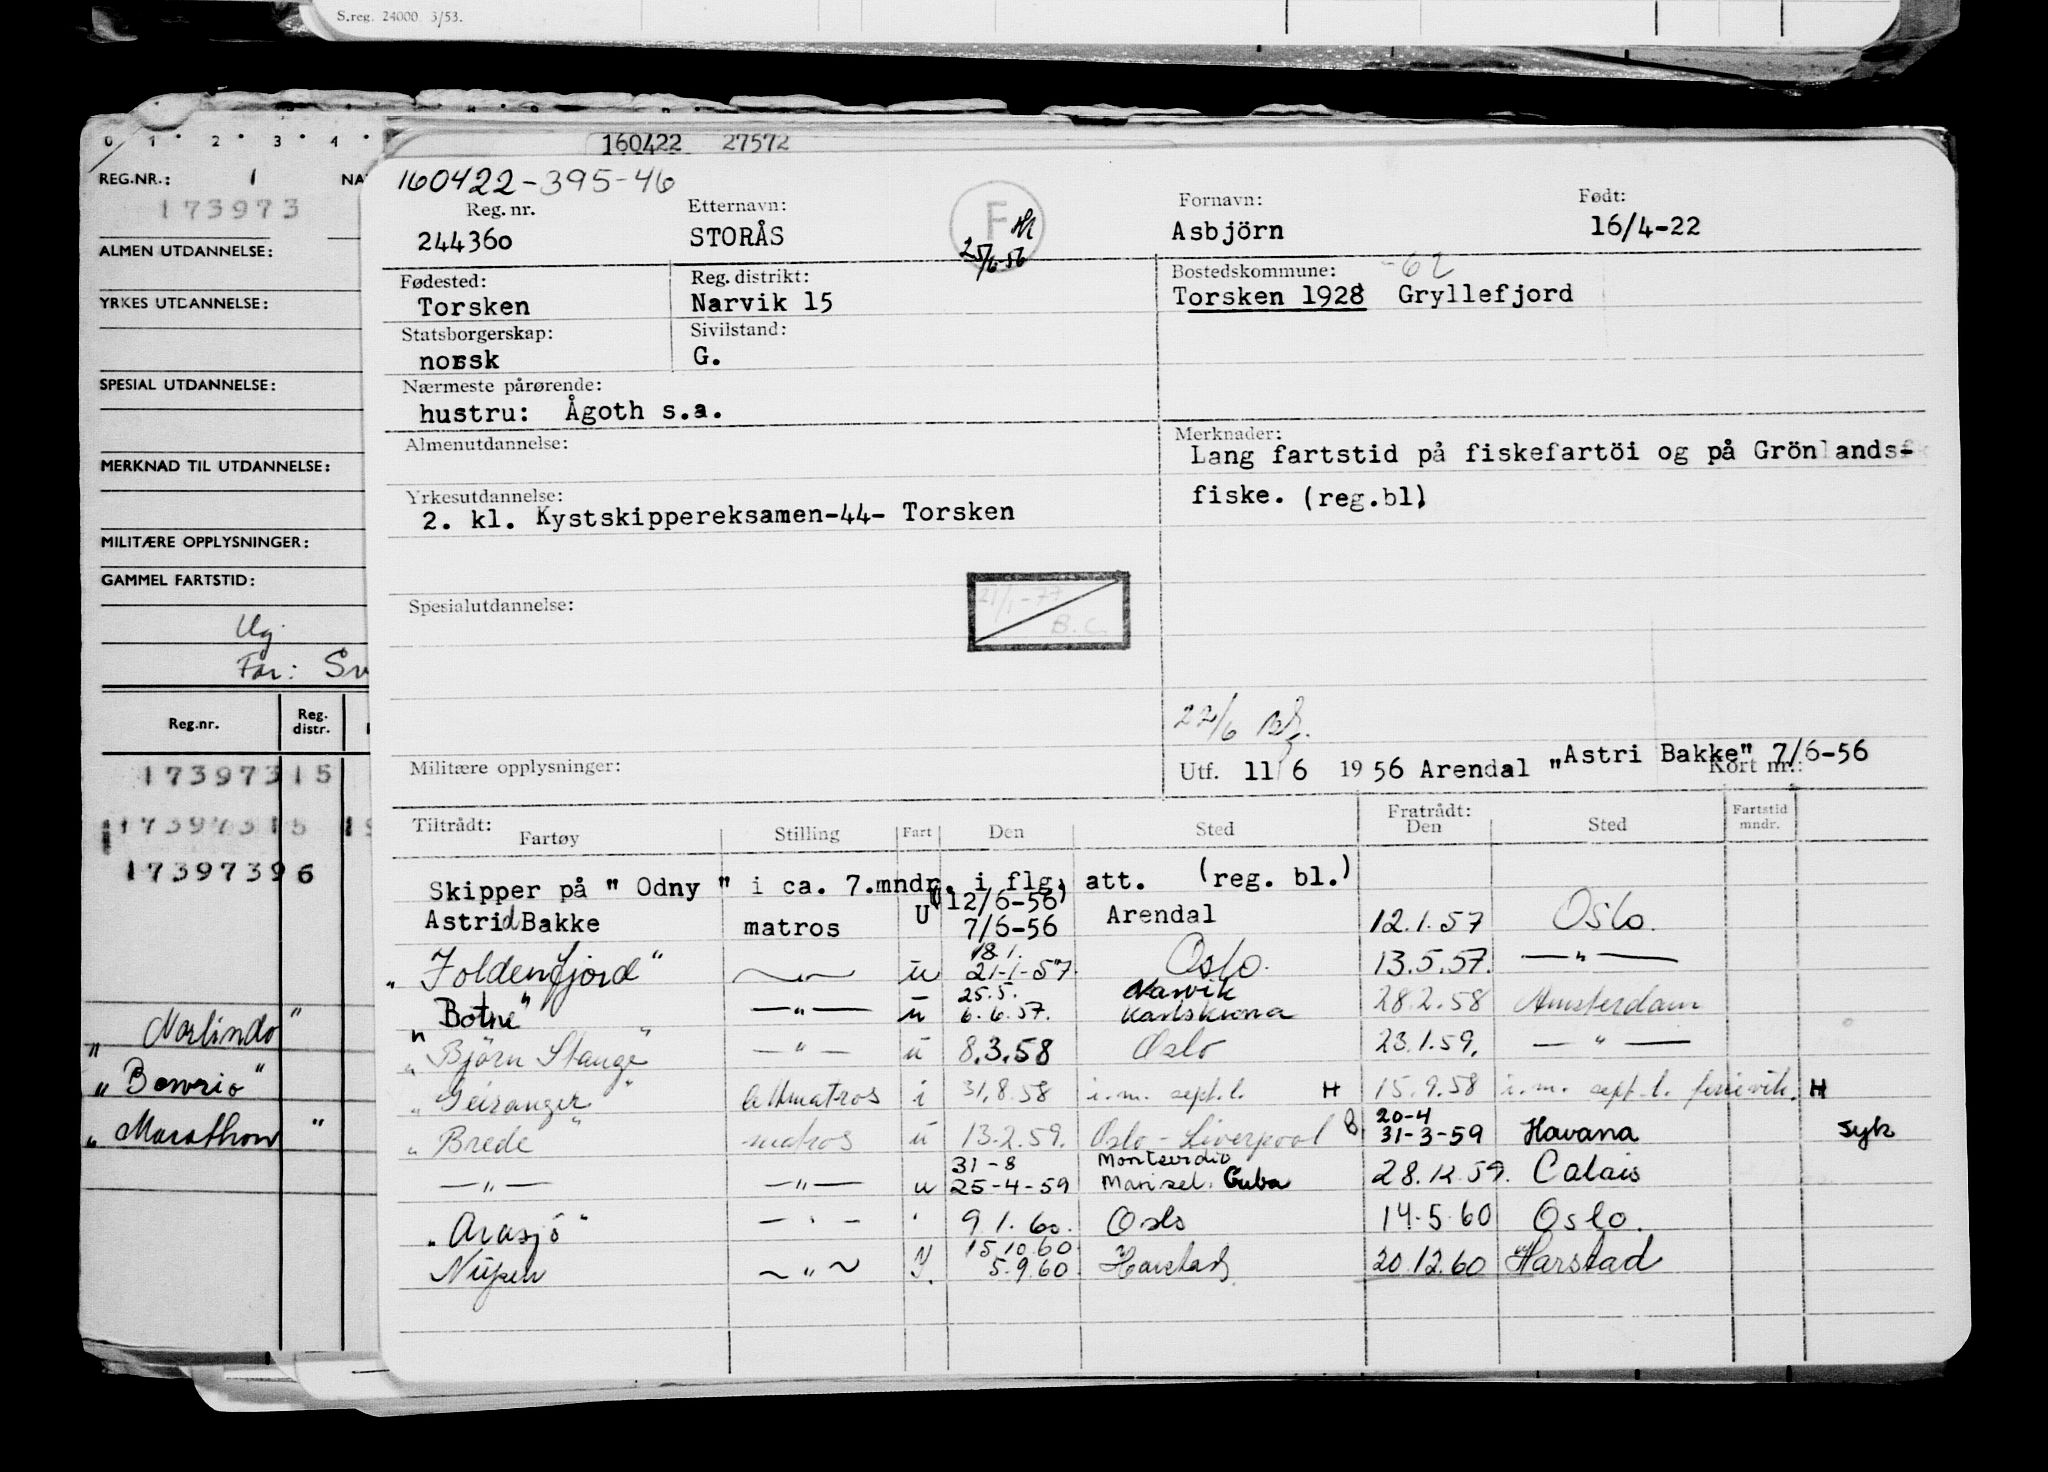 S.reg. 24000 3/53.
0 1 2 3 4
REG.NR.: 1 NA
173973
ALMEN UTDANNELSE:
YRKES UTDANNELSE:
SPESIAL UTDANNELSE:
MERKNAD TIL UTDANNELSE:
MILITÆRE OPPLYSNINGER:
GAMMEL FARTSTID:
Ug.
Far: Sv
Reg.nr. Reg. distr.
173973 15
173973 15 19
173973 96
„ Norlindo "
„ Bowrio "
„ Marathon "
160422 27572
160422-395-46
Reg. nr. Etternavn: Fornavn: Født:
244360 STORÅS F 25/6-56 Asbjörn 16/4-22
Fødested: Reg. distrikt: Bostedskommune: -62
Torsken Narvik 15 Torsken 1928 Gryllefjord
Statsborgerskap: Sivilstand:
norsk G.
Nærmeste pårørende:
hustru: Ågoth s.a.
Almenutdannelse: Merknader:
Lang fartstid på fiskefartöi og på Grönlands-
fiske. (reg.bl)
Yrkesutdannelse:
2. kl. Kystskippereksamen-44- Torsken
Spesialutdannelse:
21/1-77
B.C.
22/6
Militære opplysninger: Utf. 11/6 1956 Arendal "Astri Bakke" 7/6-56 Kort nr.:
Tiltrådt: Fratrådt: Fartstid mndr.
Fartøy Stilling Fart Den Sted Den Sted
Skipper på " Odny " i ca. 7.mndr. i flg. att. (reg. bl.)
Astrid Bakke matros U (12/6-56) 7/6-56 Arendal 12.1.57 Oslo.
„ Foldenfjord " —"— u 18.1. 21-1-57 Oslo. 13.5.57. —"—
„ Botne " —"— u 25.5. 6.6.57. Narvik Karlskrona 28.2.58 Amsterdam
„ Björn Stange " —"— u 8.3.58 Oslo 23.1.59. —"—
„ Geiranger " lettmatros i 31.8.58 i.m. sept.l. H 15.9.58 i.m. sept.l. ferievik. H
„ Brede " matros u 13.2.59. Oslo - Liverpool B 20-4 31-3-59 Havana syk
—"— —"— u 31-8 25-4-59 Montevidio Mariel. Cuba 28.12.59. Calais
„ Arasjö " —"— " 9.1.60. Oslo 14.5.60 Oslo.
Nupen —"— I. 15.10.60 5.9.60 Harstad. 20.12.60 Harstad